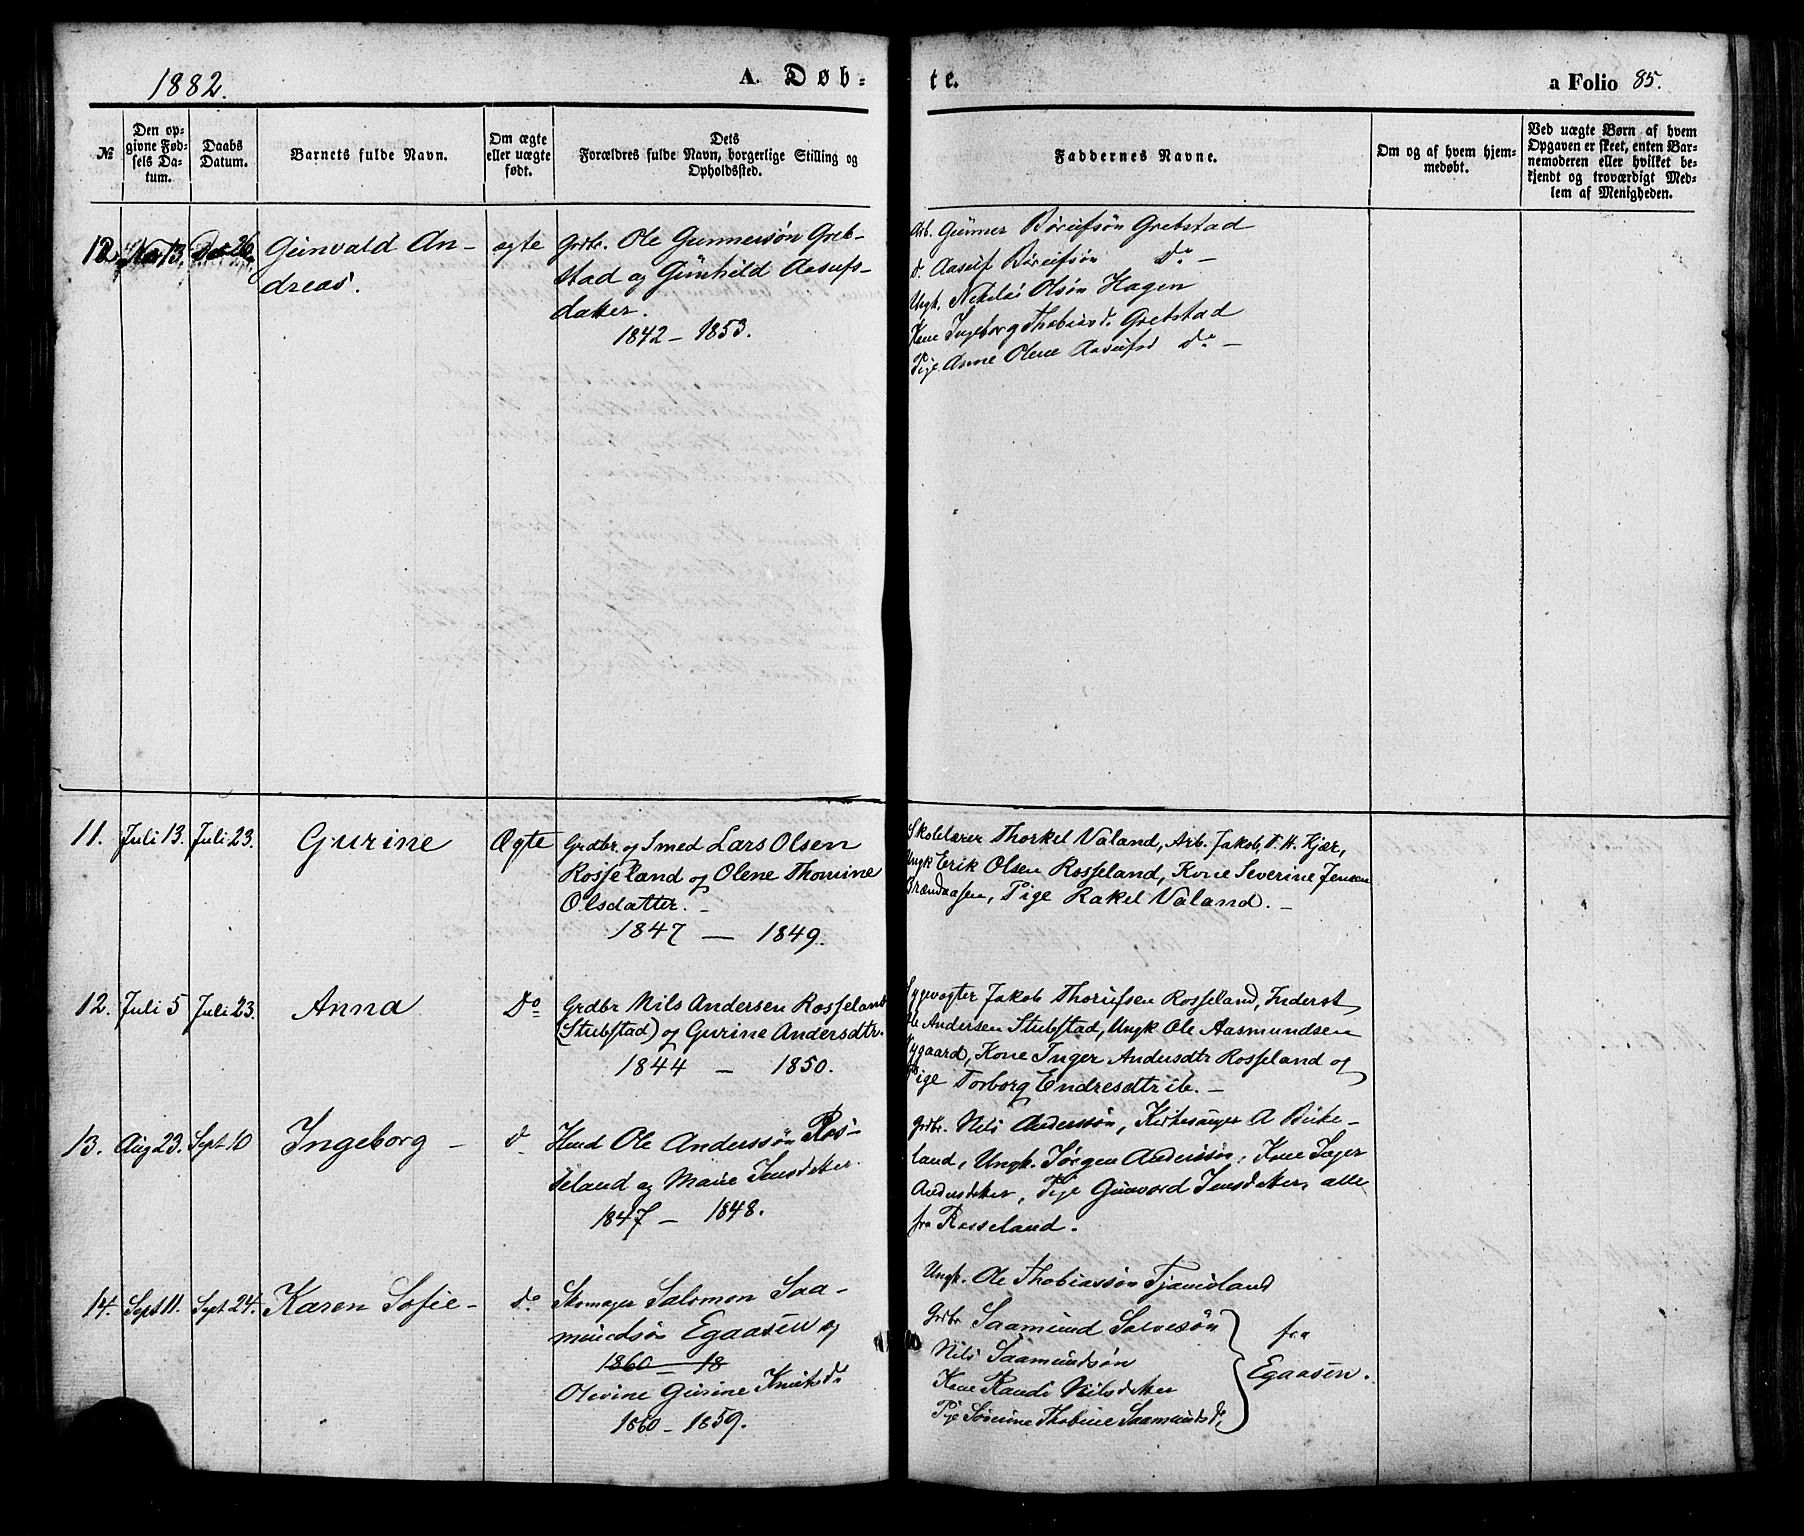 1882.
A. Døb-
te.
a Folio 85.
№
Den op-
givne Fød-
sels Da-
tum.
Daabs
Datum.
Barnets fulde Navn.
Om ægte
eller uægte
født.
Dets
Forældres fulde Navn, borgerlige Stilling og
Opholdssted.
Faddernes Navne.
Om og af hvem hjem-
medøbt.
Ved uægte Børn af hvem
Opgaven er skeet, enten Bar-
nemoderen eller hvilket be-
kjendt og troværdigt Med-
lem af Menigheden.
12. 13. 26 Gunvald An-
dreas.
ægte
Grdbr. Ole Gunnersøn Greb-
stad og Gunhild Aasufs-
datter.
1842 - 1853.
Arb. Gunner Grebstad
d. Aasulf Do -
Ungk. Nikolai Olsøn Hagen
Kone Ingeborg Thobiasd. Grebstad
Pige Anne Olene Aasufsd Do -
11. Juli 13. Juli 23. Gurine Ægte
Grdbr. og Smed Lars Olsen
Rosseland og Olene Thomine
Olsdatter. -
1847 - 1849.
Skolelærer Thorkel Valand, Arb. Jakob, T. H. Kjær,
Ungk Erik Olsen Rosseland, Kone Severine Jensen
Brændaasen, Pige Rakel Valand. -
12. Juli 5 Juli 23. Anna Do
Grdbr Nils Andersen Rosseland
(Stubstad) og Gurine Andersdtr.
1844 - 1850.
Sygevogter Jakob Rosseland, Inderst
Ole Andersen Stubstad, Ungk Ole Aasmundsen
Nygaard, Kone Inger Andersdtr Rosseland og
Pige Torborg Endresdtr ib. -
13. Aug 23. Sept. 10 Ingeborg - d.
Huusmd Ole Anderssøn Ros-
seland og Marie Jensdatter.
1847 - 1848.
Grdbr. Nils Anderssøn, Kirkesanger A Birke-
land, Ungk. Jørgen Anderssøn, Kone Inger
Andersdatter, Pige Gunvord Jensdatter, alle
fra Rosseland.
14. Sept 11. Sept 24. Karen Sofie - do
Skomager Salomon Saa-
mundsøn Egaasen og
1860 - 18
Olevine Gurine Knutsd.
1860 - 1859.
Ungk. Ole Thobiassøn Tjamsland
Grdbr Saamund Salvesøn
Nils Saamundsøn
Kone Randi Nilsdatter
Pige Thobine Saamundsd.
fra
Egaasen.